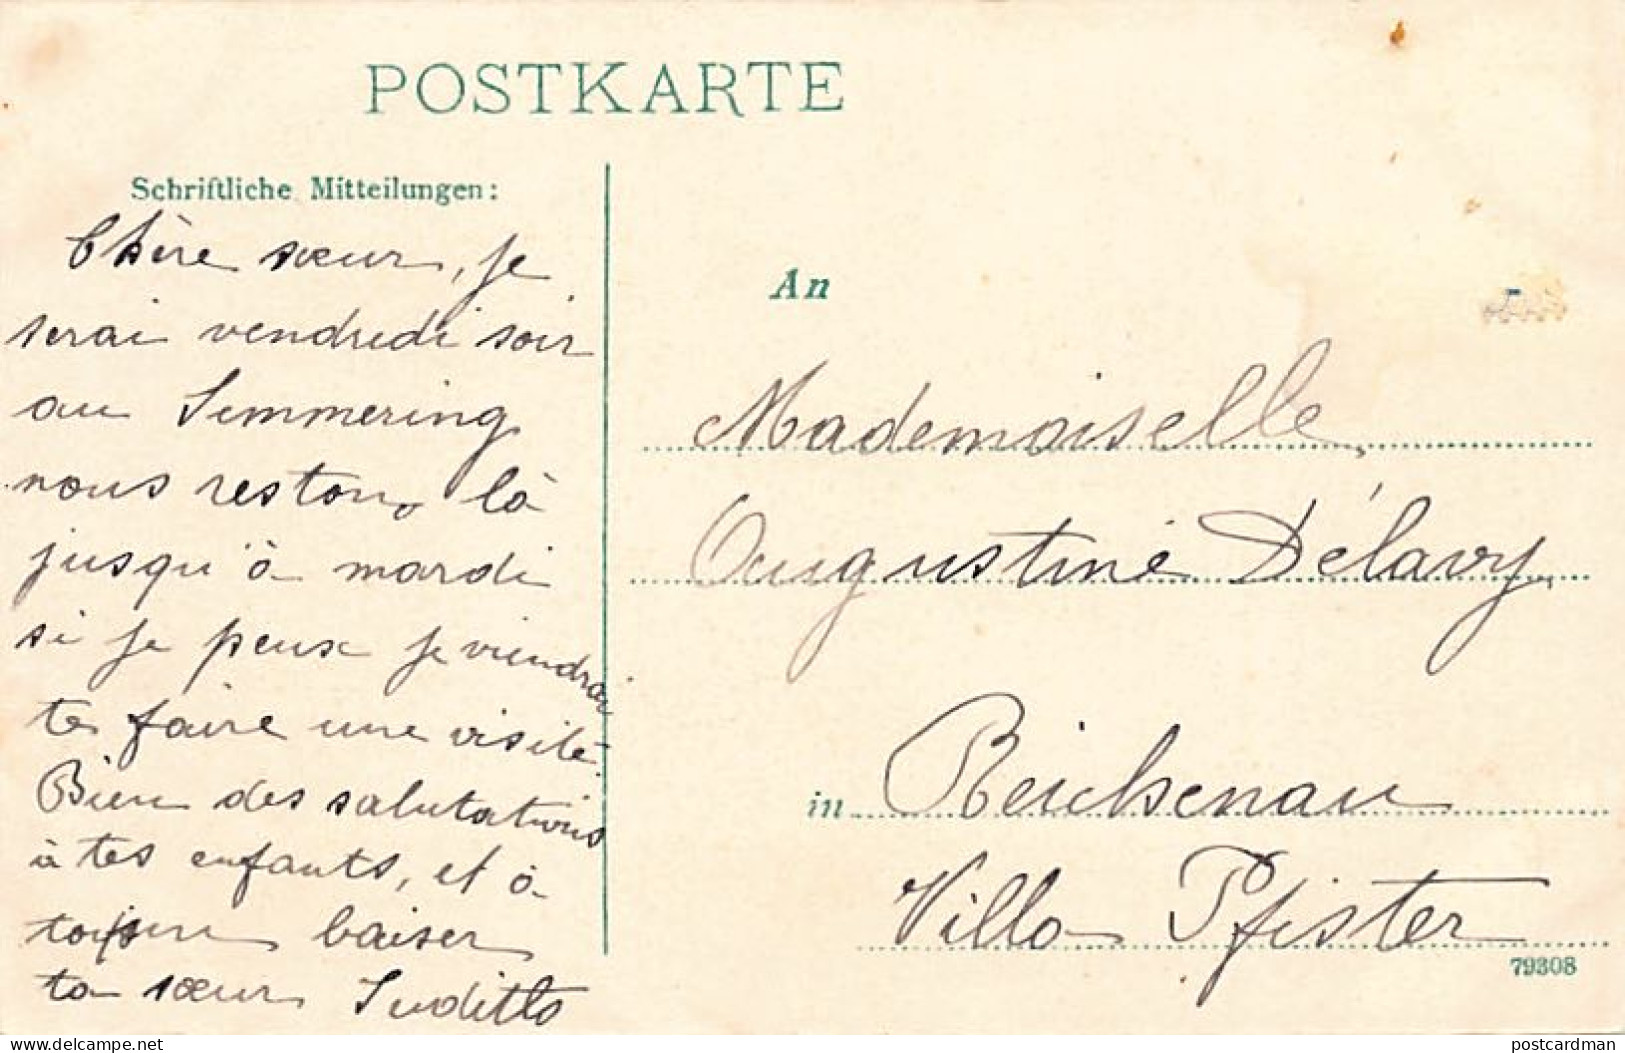 POSTKARTE
Schriftliche Mitteilungen:
Chère sœur, je
serai vendredi soir
au Semmering
nous restons là
jusqu'à mardi
si je peux je viendrai
te faire une visite.
Bien des salutations
à tes enfants, et à
toi un baiser
ta sœur
An
Mademoiselle,
Augustine Délavy,
in Reichenau
Villa Pfister
79308
www.delcampe.net
postcardman